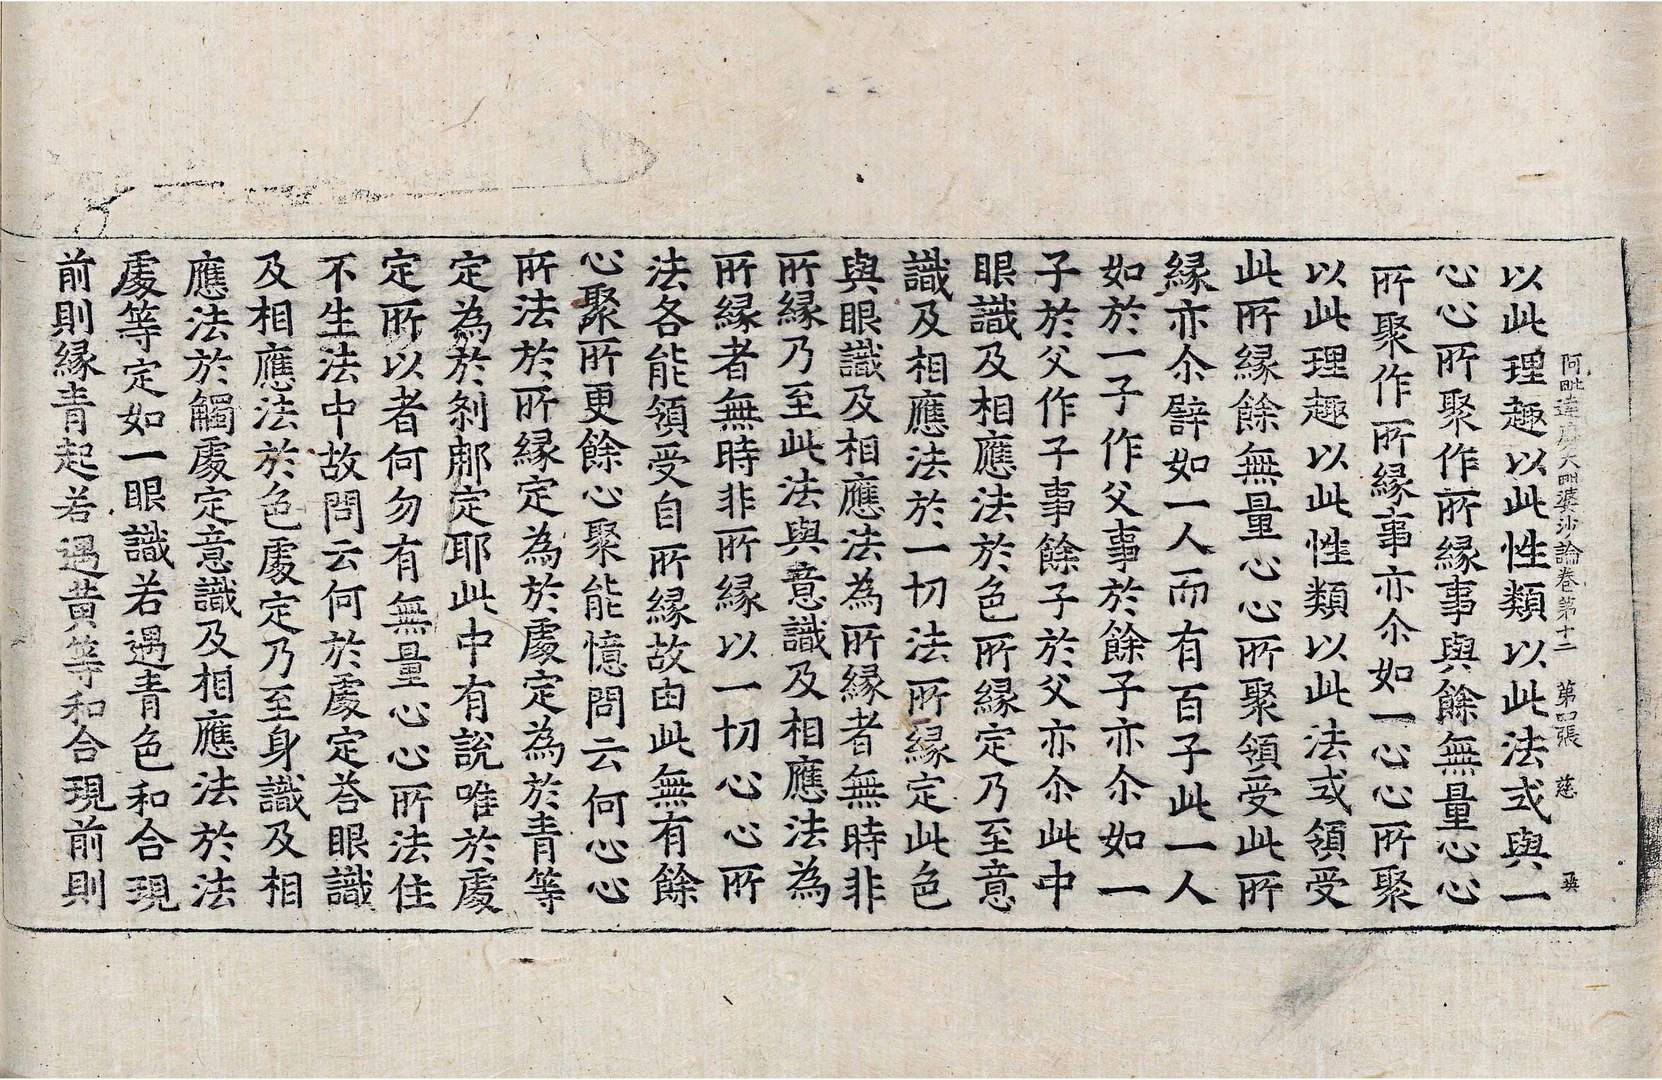 阿毗達磨大毗婆沙論卷第十二　第四張　慈
以此理趣以此性類以此法或與一
心心所聚作所緣事與餘無量心心
所聚作所緣事亦尒如一心心所聚
以此理趣以此性類以此法或領受
此所緣餘無量心心所聚領受此所
緣亦尒辟如一人而有百子此一人
如於一子作父事於餘子亦尒如一
子於父作子事餘子於父亦尒此中
眼識及相應法於色所緣定乃至意
識及相應法於一切法所緣定此色
與眼識及相應法為所緣者無時非
所緣乃至此法與意識及相應法為
所緣者無時非所緣以一切心心所
法各能領受自所緣故由此無有餘
心聚所更餘心聚能憶問云何心心
所法於所緣定為於處定為於青等
定為於剎那定耶此中有說唯於處
定所以者何勿有無量心心所法住
不生法中故問云何於處定荅眼識
及相應法於色處定乃至身識及相
應法於觸處定意識及相應法於法
處等定如一眼識若遇青色和合現
前則緣青起若遇黃等和合現前則